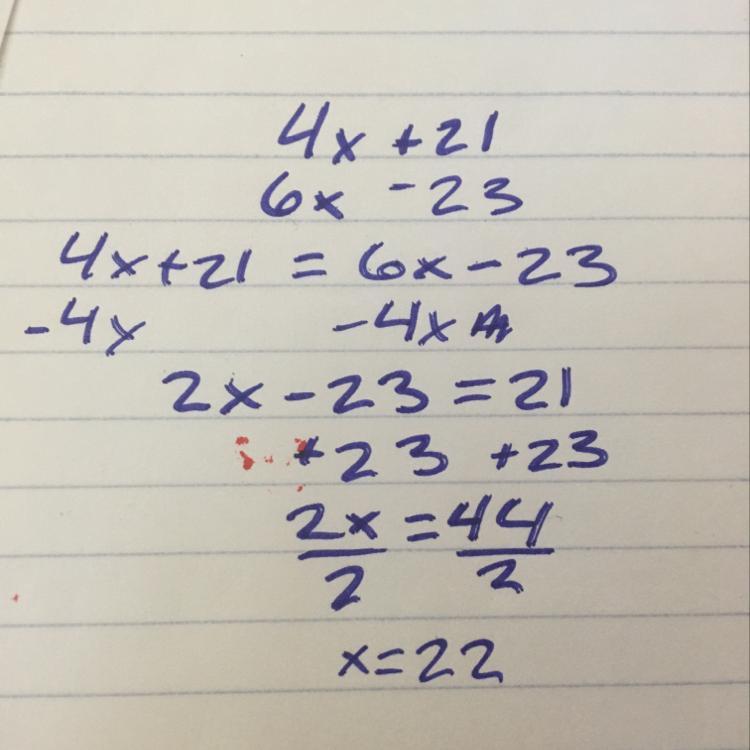 4x +21
6x -23
4x+21 = 6x-23
-4x -4x
2x-23=21
+23 +23
2x =44
2 2
x=22